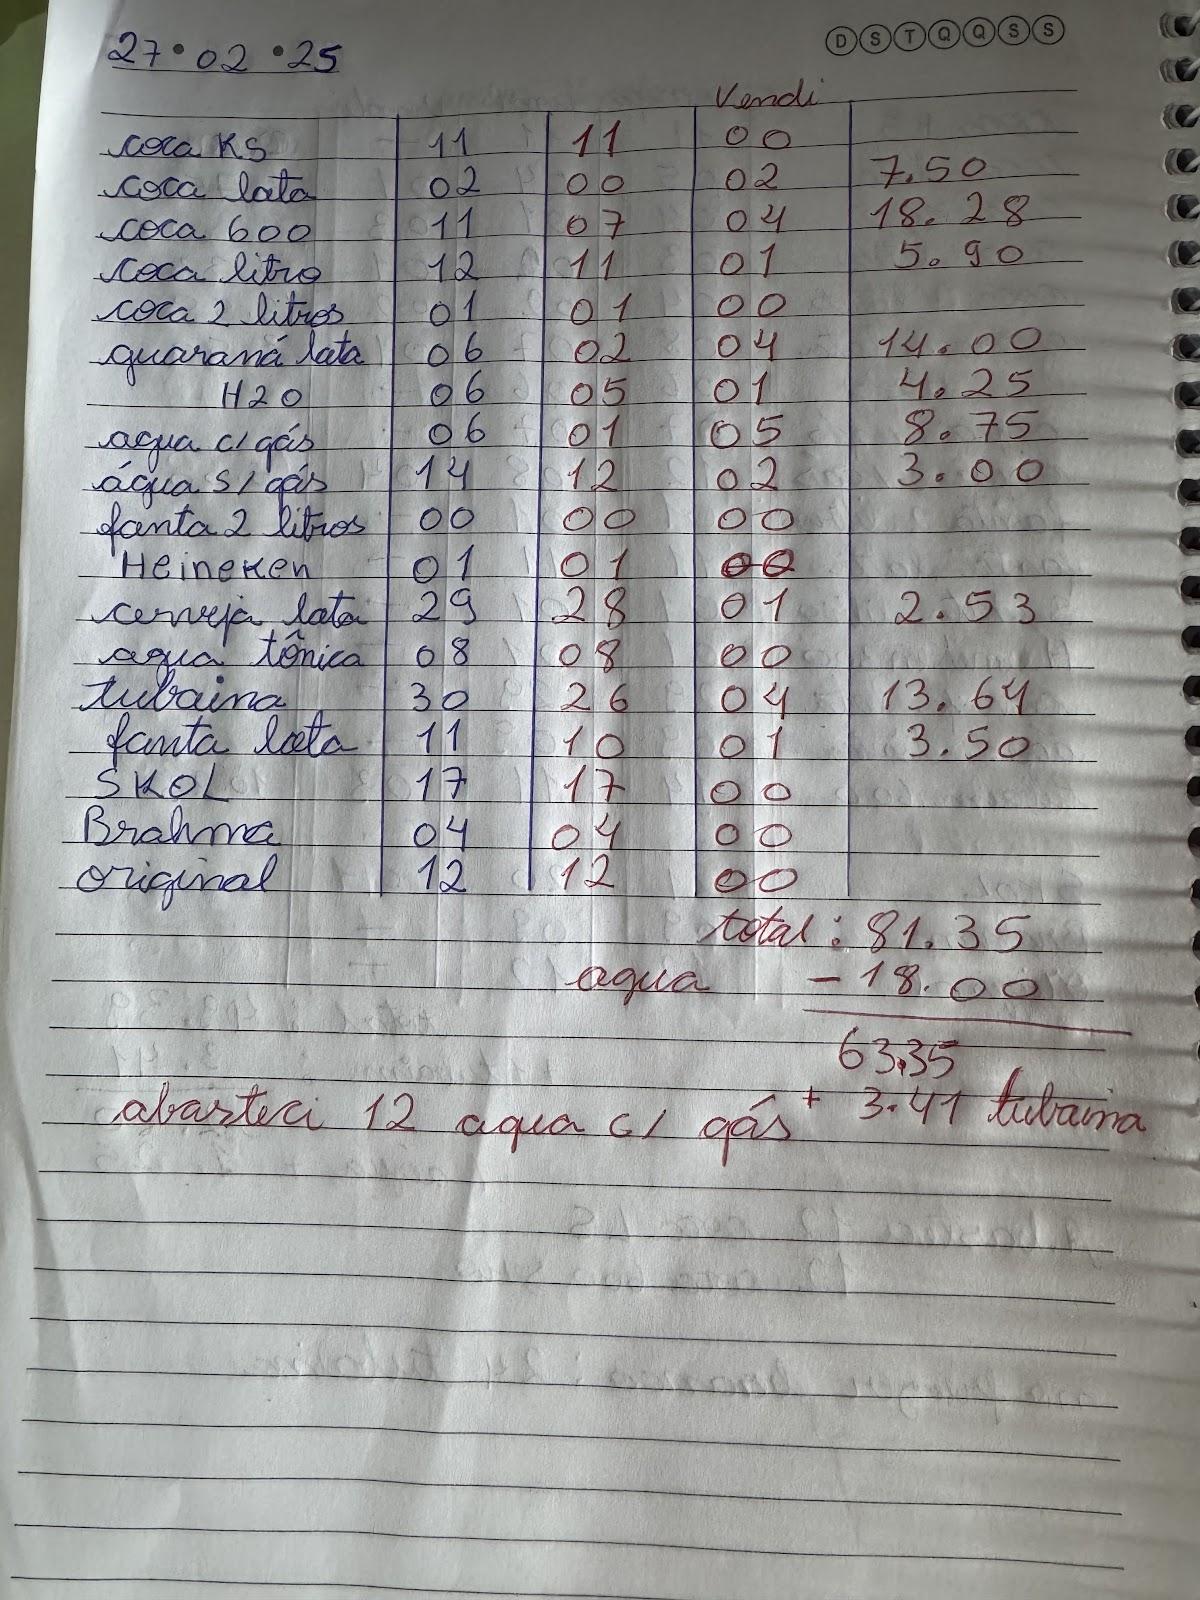 27.02.25 D S T Q Q S S
Vendi
coca KS 11 11 00
coca lata 02 00 02 7.50
coca 600 11 07 04 18.28
coca litro 12 11 01 5.90
coca 2 litros 01 01 00
guaraná lata 06 02 04 14.00
H2O 06 05 01 4.25
agua c/ gás 06 01 05 8.75
água s/ gás 14 12 02 3.00
fanta 2 litros 00 00 00
Heineken 01 01 00
cerveja lata 29 28 01 2.53
agua tônica 08 08 00
tubaina 30 26 04 13.64
fanta lata 11 10 01 3.50
SKOL 17 17 00
Brahma 04 04 00
original 12 12 00
total: 81.35
agua - 18.00
63.35
abasteci 12 agua c/ gás + 3.41 tubaina